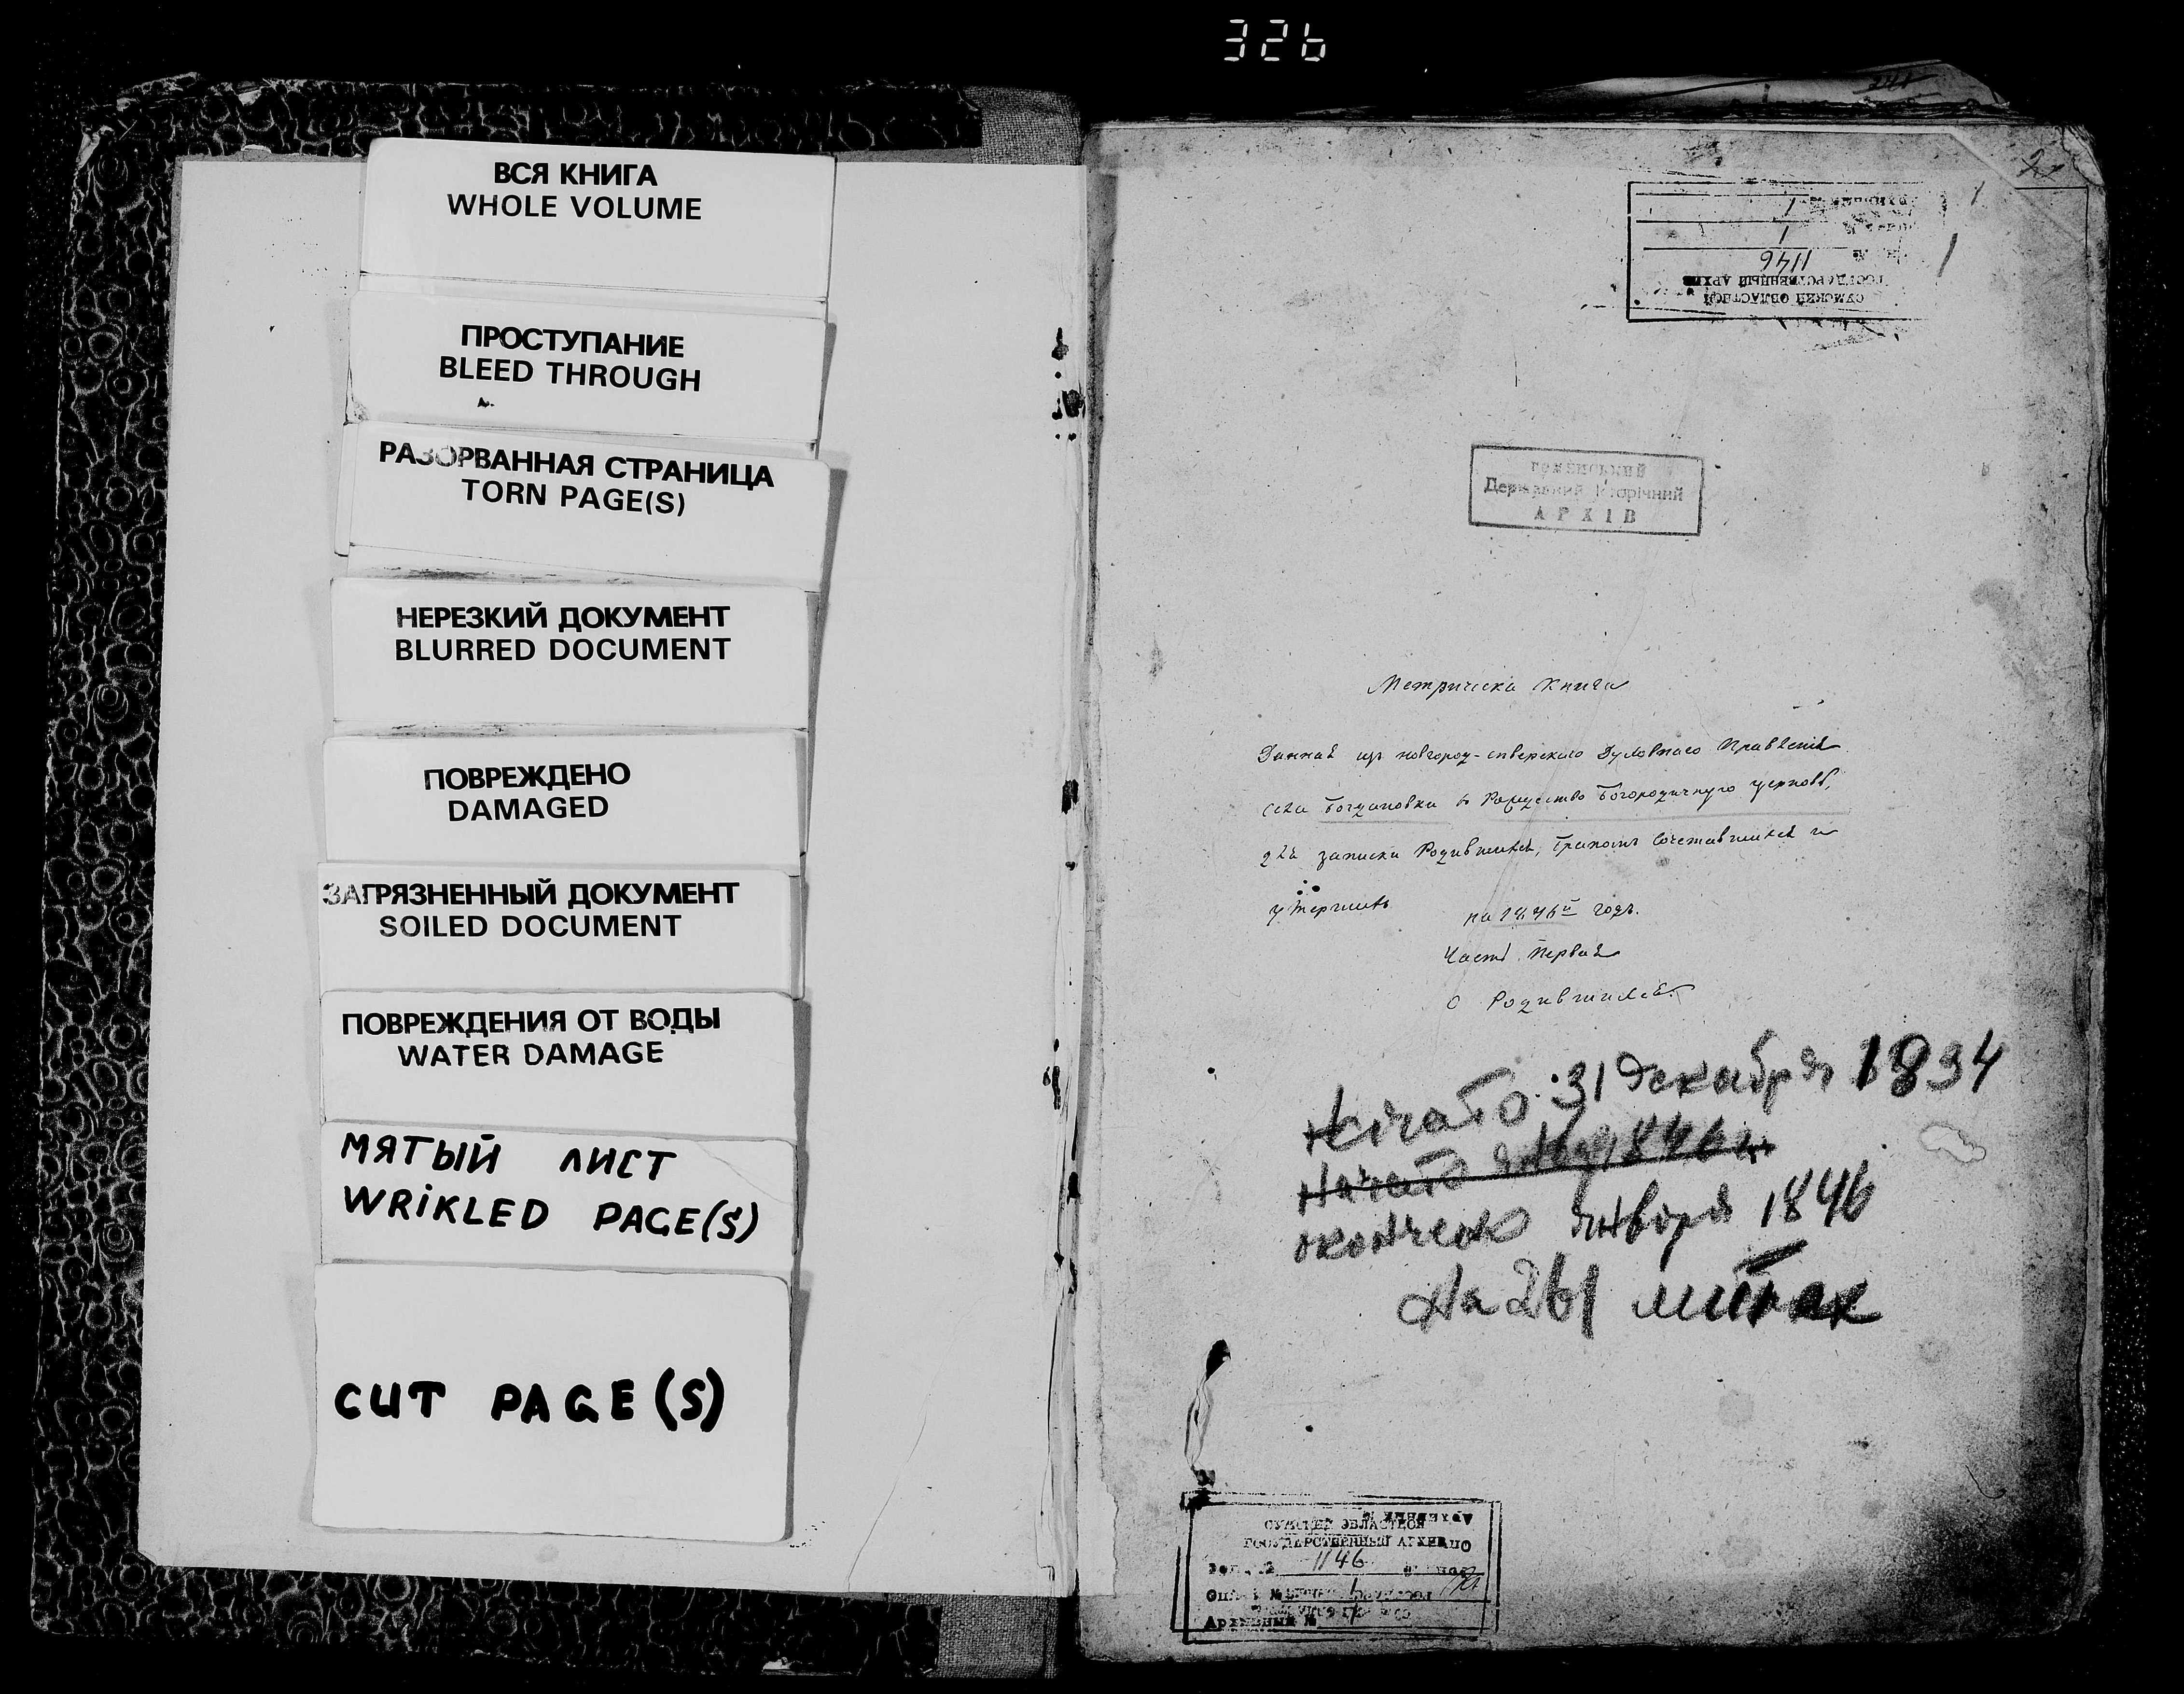 326
ВСЯ КНИГА
WHOLE VOLUME
ПРОСТУПАНИЕ
BLEED THROUGH
РАЗОРВАННАЯ СТРАНИЦА
TORN PAGE(S)
НЕРЕЗКИЙ ДОКУМЕНТ
BLURRED DOCUMENT
ПОВРЕЖДЕНО
DAMAGED
ЗАГРЯЗНЕННЫЙ ДОКУМЕНТ
SOILED DOCUMENT
ПОВРЕЖДЕНИЯ ОТ ВОДЫ
WATER DAMAGE
МЯТЫЙ ЛИСТ
WRIKLED PAGE(S)
CUT PAGE(S)
СУМСКИЙ ОБЛАСТНОЙ
ГОСУДАРСТВЕННЫЙ АРХИВ
№ 1146
1
1
Державний Історічний
АРХІВ
Метрическа книга
Данная изъ новгород-сѣверскаго Духовнаго Правленія
села Богдановки в Рождество Богородичную церковь,
для записки Родившихся, бракомъ Сочетавшихся и
умершихъ на 1846й годъ.
Часть Первая
О Родившихся.
Начато 31 декабря 1834
Начато 1846 г.
окончено января 1846
На 261 листах
СУМСКИЙ ОБЛАСТНОЙ
ГОСУДАРСТВЕННЫЙ АРХИВ
1146
Опись № 1
Архивный № 1